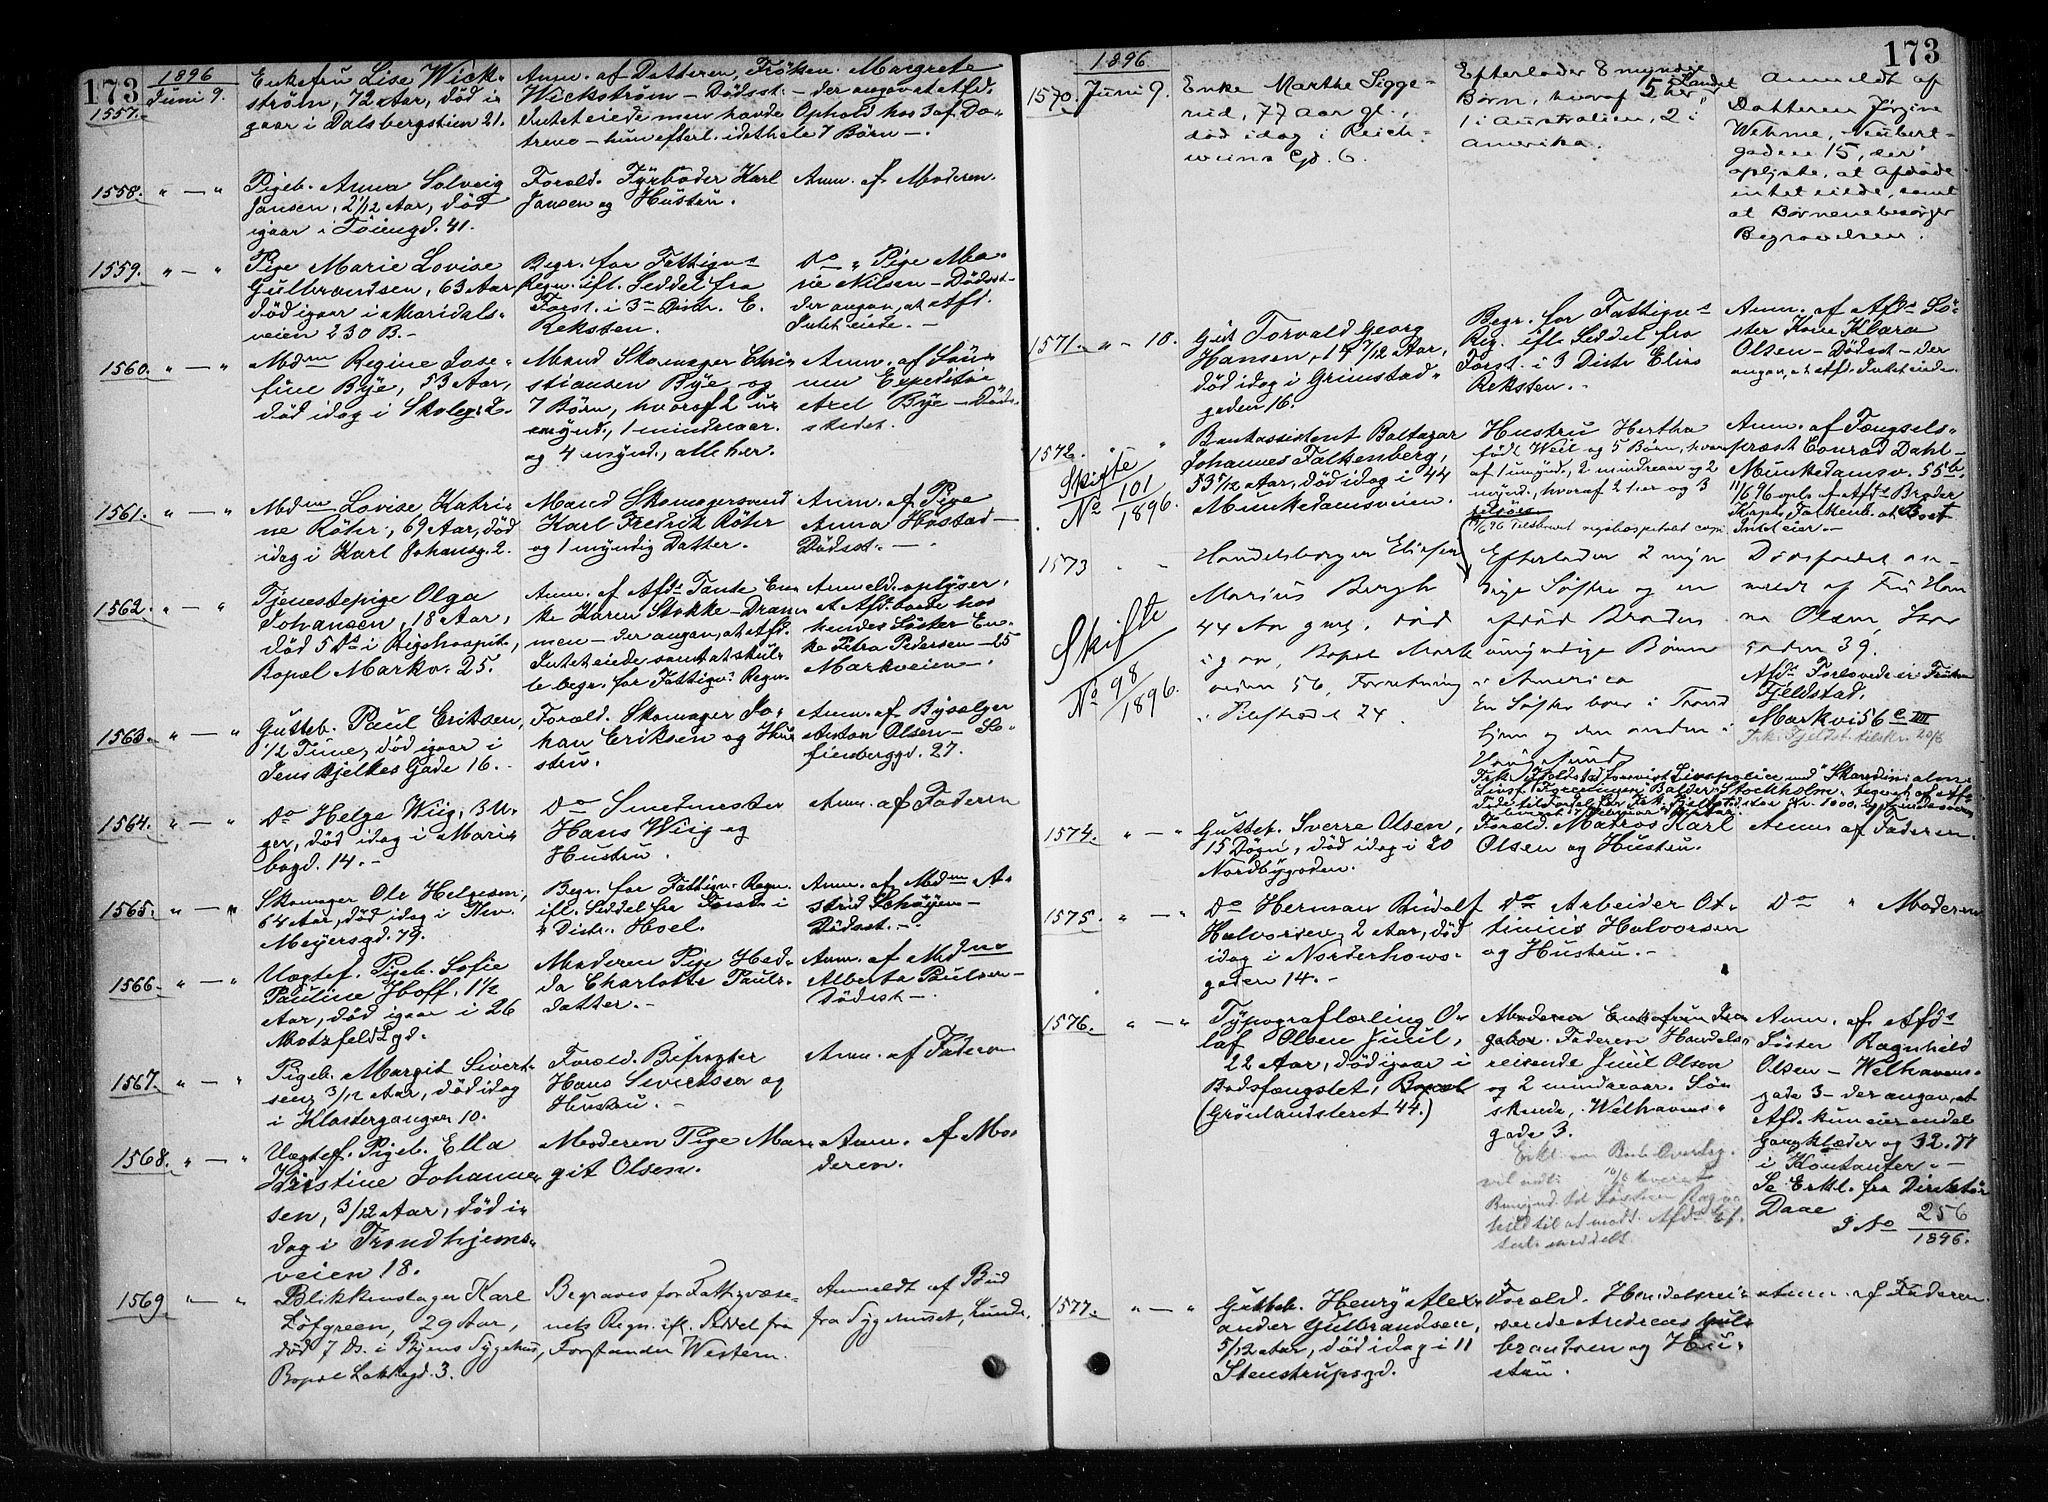 173
1896
Juni 9.
1557.
Enkefru Lise Wick-
strøm, 72 Aar, død i
gaar i Dalsbergstien 21.
Anm. af Datteren, Frøken Margrete
Wickstrøm – Dødsst. – der angav at Afd.
Intet eiede men havde Ophold hos 3 af Dø-
trene – hun efterl. idethele 7 Børn –.
1558. " — "
Pigeb. Anna Solveig
Jansen, 2 1/12 Aar, død
igaar i Tøiengd. 41.
Foræld. Fyrbøder Karl
Jansen og Hustru.
Anm. af Moderen.
1559. " — "
Pige Marie Lovise
Gulbrandsen, 63 Aar,
død igaar i Maridals-
veien 230 B. –
Begr. for Fattigv.s
Regn. ifl. Seddel fra
Forst. i 3die Distr. E.
Reksten.
Do " Pige Ma-
rie Nilsen – Dødsst –
der angav, at Afd.
Intet eiede. –
1560. " — "
Mdme Regine Jose-
fine Bye, 53 Aar,
død idag i Skoleg. 2.
Mand Skomager Chri
stiansen Bye og
7 Børn, hvoraf 2 u-
mynd., 1 mindreaar.
og 4 mynd., alle her.
Anm. af Søn-
nen Expeditør
Axel Bye – Døds-
stedet.
1561. " — "
Mdme Lovise Katri-
ne Røhr, 69 Aar, død
idag i Karl Johansg. 2.
Mand Skomagersvend
Karl Fredrik Röhr
og 1 myndig Datter.
Anm. af Pige
Anna Hostad –
Dødsst. –
1562. " — "
Tjenestepige Olga
Johansen, 18 Aar,
død 5 Ds i Rigshospit.,
Bopæl Markv. 25.
Anm. af Afds Tante En-
ke Karen Stokke – Dram-
men – der angav, at Afd.
Intet eiede samt at skul-
le begr. for Fattigv. Regn.
Anmeld. oplyser,
at Afd. boede hos
hendes Søster En-
ke Petra Pedersen – 25
Markveien.
1563. " — "
Gutteb. Paul Eriksen,
1/2 Time, død igaar i
Jens Bjelkes Gade 16.
Foræld. Skomager Jo-
han Eriksen og Hu-
stru.
Anm. af Bysælger
Anton Olsen – So-
fienberggd. 27.
1564. " — "
Do Helge Wiig, 3 U-
ger, død idag i Mari-
bogd. 14. –
Do Smedmester
Hans Wiig og
Hustru.
Anm. af Faderen
1565. " — "
Skomager Ole Helgesen,
54 Aar, død idag i Thv.
Meyersgd. 79.
Begr. for Fattigv. Regn.
ifl. Seddel fra Forst. i
Distr. Hoel.
Anm. af Mdme A-
strid Schøyen –
Dødsst. –
1566. " — "
Uægtef. Pigeb. Sofie
Pauline Hoff, 1 1/2
Aar, død igaar i 26
Motzfeldtgd.
Moderen Pige Hed-
da Charlotte Pauls-
datter. –
Anm. af Mdme
Alberta Paulsen –
Dødsst –
1567. " — "
Pigeb. Margit Sivert-
sen, 3/12 Aar, død idag
i Klostergangen 10.
Foræld. Befragter
Hans Sivertsen og
Hustru. –
Anm. af Faderen
1568. " — "
Uægtef. Pigeb. Ella
Kristine Johanne-
sen, 3/12 Aar, død i-
dag i Trondhjems-
veien 18.
Moderen Pige Mar-
git Olsen.
Anm. af Mo-
deren.
1569 " — "
Blikkenslager Karl
Løfgreen, 29 Aar,
død 7 Ds. i Byens Sygehus,
Bopæl Lakkegd. 3.
Begraves for Fattigvæse-
nets Regn. ifl. Seddel fra
Forstander Western.
Anmeldt af Bud
fra Sygehuset, Lunde.
173
1896
1570. Juni 9.
Enke Marthe Sigge-
rud, 77 Aar gl.,
død idag i Reich-
weins Gd. 6.
Efterlader 8 myndige
Børn, hvoraf 5 her i Landet
1 i Australien, 2 i
Amerika.
Anmeldt af
Datteren Jørgine
Wehme, Neubert-
gaden 15, der
oplyste, at Afdøde
intet eiede, samt
at Børnene besørger
Begravelsen.
1571. " – 10.
Gut Torvald Georg
Hansen, 14 7/12 Aar,
død idag i Grimstad-
gaden 16.
Begr. for Fattigv.s
Reg. ifl. Seddel fra
Forst. i 3 Distr Elias
Reksten. –
Anm. af Afds Sø-
ster Kone Klara
Olsen – Dødsst – der
angav, at Afd. Intet eiede
1572. "
Skifte
No 101/1896.
Bankassistent Baltazar
Johannes Falkenberg,
53 5/12 Aar, død idag i 44
Munkedamsveien.
Hustru Hertha
født Weil og 5 Børn, hvor-
af 1 umynd., 2 mindreaar og 2
mynd., hvoraf 2 her og 3
Anm. af Fængsels-
præst Conrad Dahl –
Munkedamsv. 55 b.
11/6 96 opl. af Afds Broder
Kapt. Falkenb. at Boet
Intet eier. –
1573 " "
Skifte
No 98/1896.
Handelsborger Elies
Marius Bergh
44 Aar gml. død
igaar, Bopæl Mark
veien 56, Forretning
i Pilestrædet 24.
Efterlader 2 myn
dige Søstre og en
afdød Broders
umyndige Børn
i America
En Søster bor i Trond
hjem og den anden i
Dødsfaldet an-
meldt af Fru Han
na Olsen, Stor
gaden 39.
Afds Forlovede er Frøken
Fjeldstad,
Markv 56 c III
Frk. Fjeldst. tilskr. 20/6
1574. " — "
Gutteb. Sverre Olsen,
15 Døgn, død idag i 20
Nordbygaden.
Foræld. Matros Karl
Olsen og Hustru.
Anm. af Faderen.
1575. " — "
Do Herman Rudolf
Halvorsen, 2 Aar, død
idag i Norderhovs-
gaden 14. –
Do Arbeider Ot-
tinius Halvorsen
og Hustru. –
Do " Moderen
1576. " — "
Typograflærling O-
laf Olsen Juul,
22 Aar, død igaar i
Bodsfængslet, Bopæl
(Grønlandsleret 44.)
gabor. Faderen Handels-
reisende Juul Olsen
og 2 mindreaar. Sø-
skende, Welhavens-
gade 3.
Anm. af Afds
Søster Ragnhild
Olsen – Welhavens-
gade 3 – der angav, at
Afd. kun eier endel
Gangklæder og 32.71
i Kontanter. –
Se Erkl. fra Direktør
Daae
J No 256/1896.
1577. " — "
Gutteb. Henry Alex-
ander Gulbrandsen,
5/12 Aar, død idag i 11
Stenstrupsgd.
Foræld. Handelsrei-
sende Andreas Gul-
brandsen og Hu-
stru.
Anm. af Faderen.